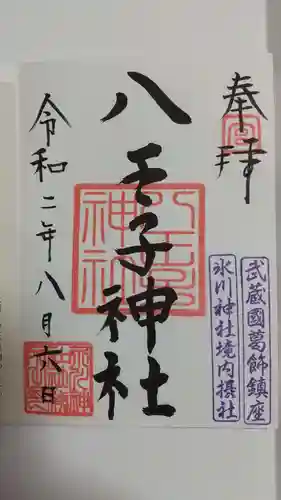 奉拝
武蔵國葛飾鎮座
氷川神社境内摂社
八王子神社
令和二年八月六日